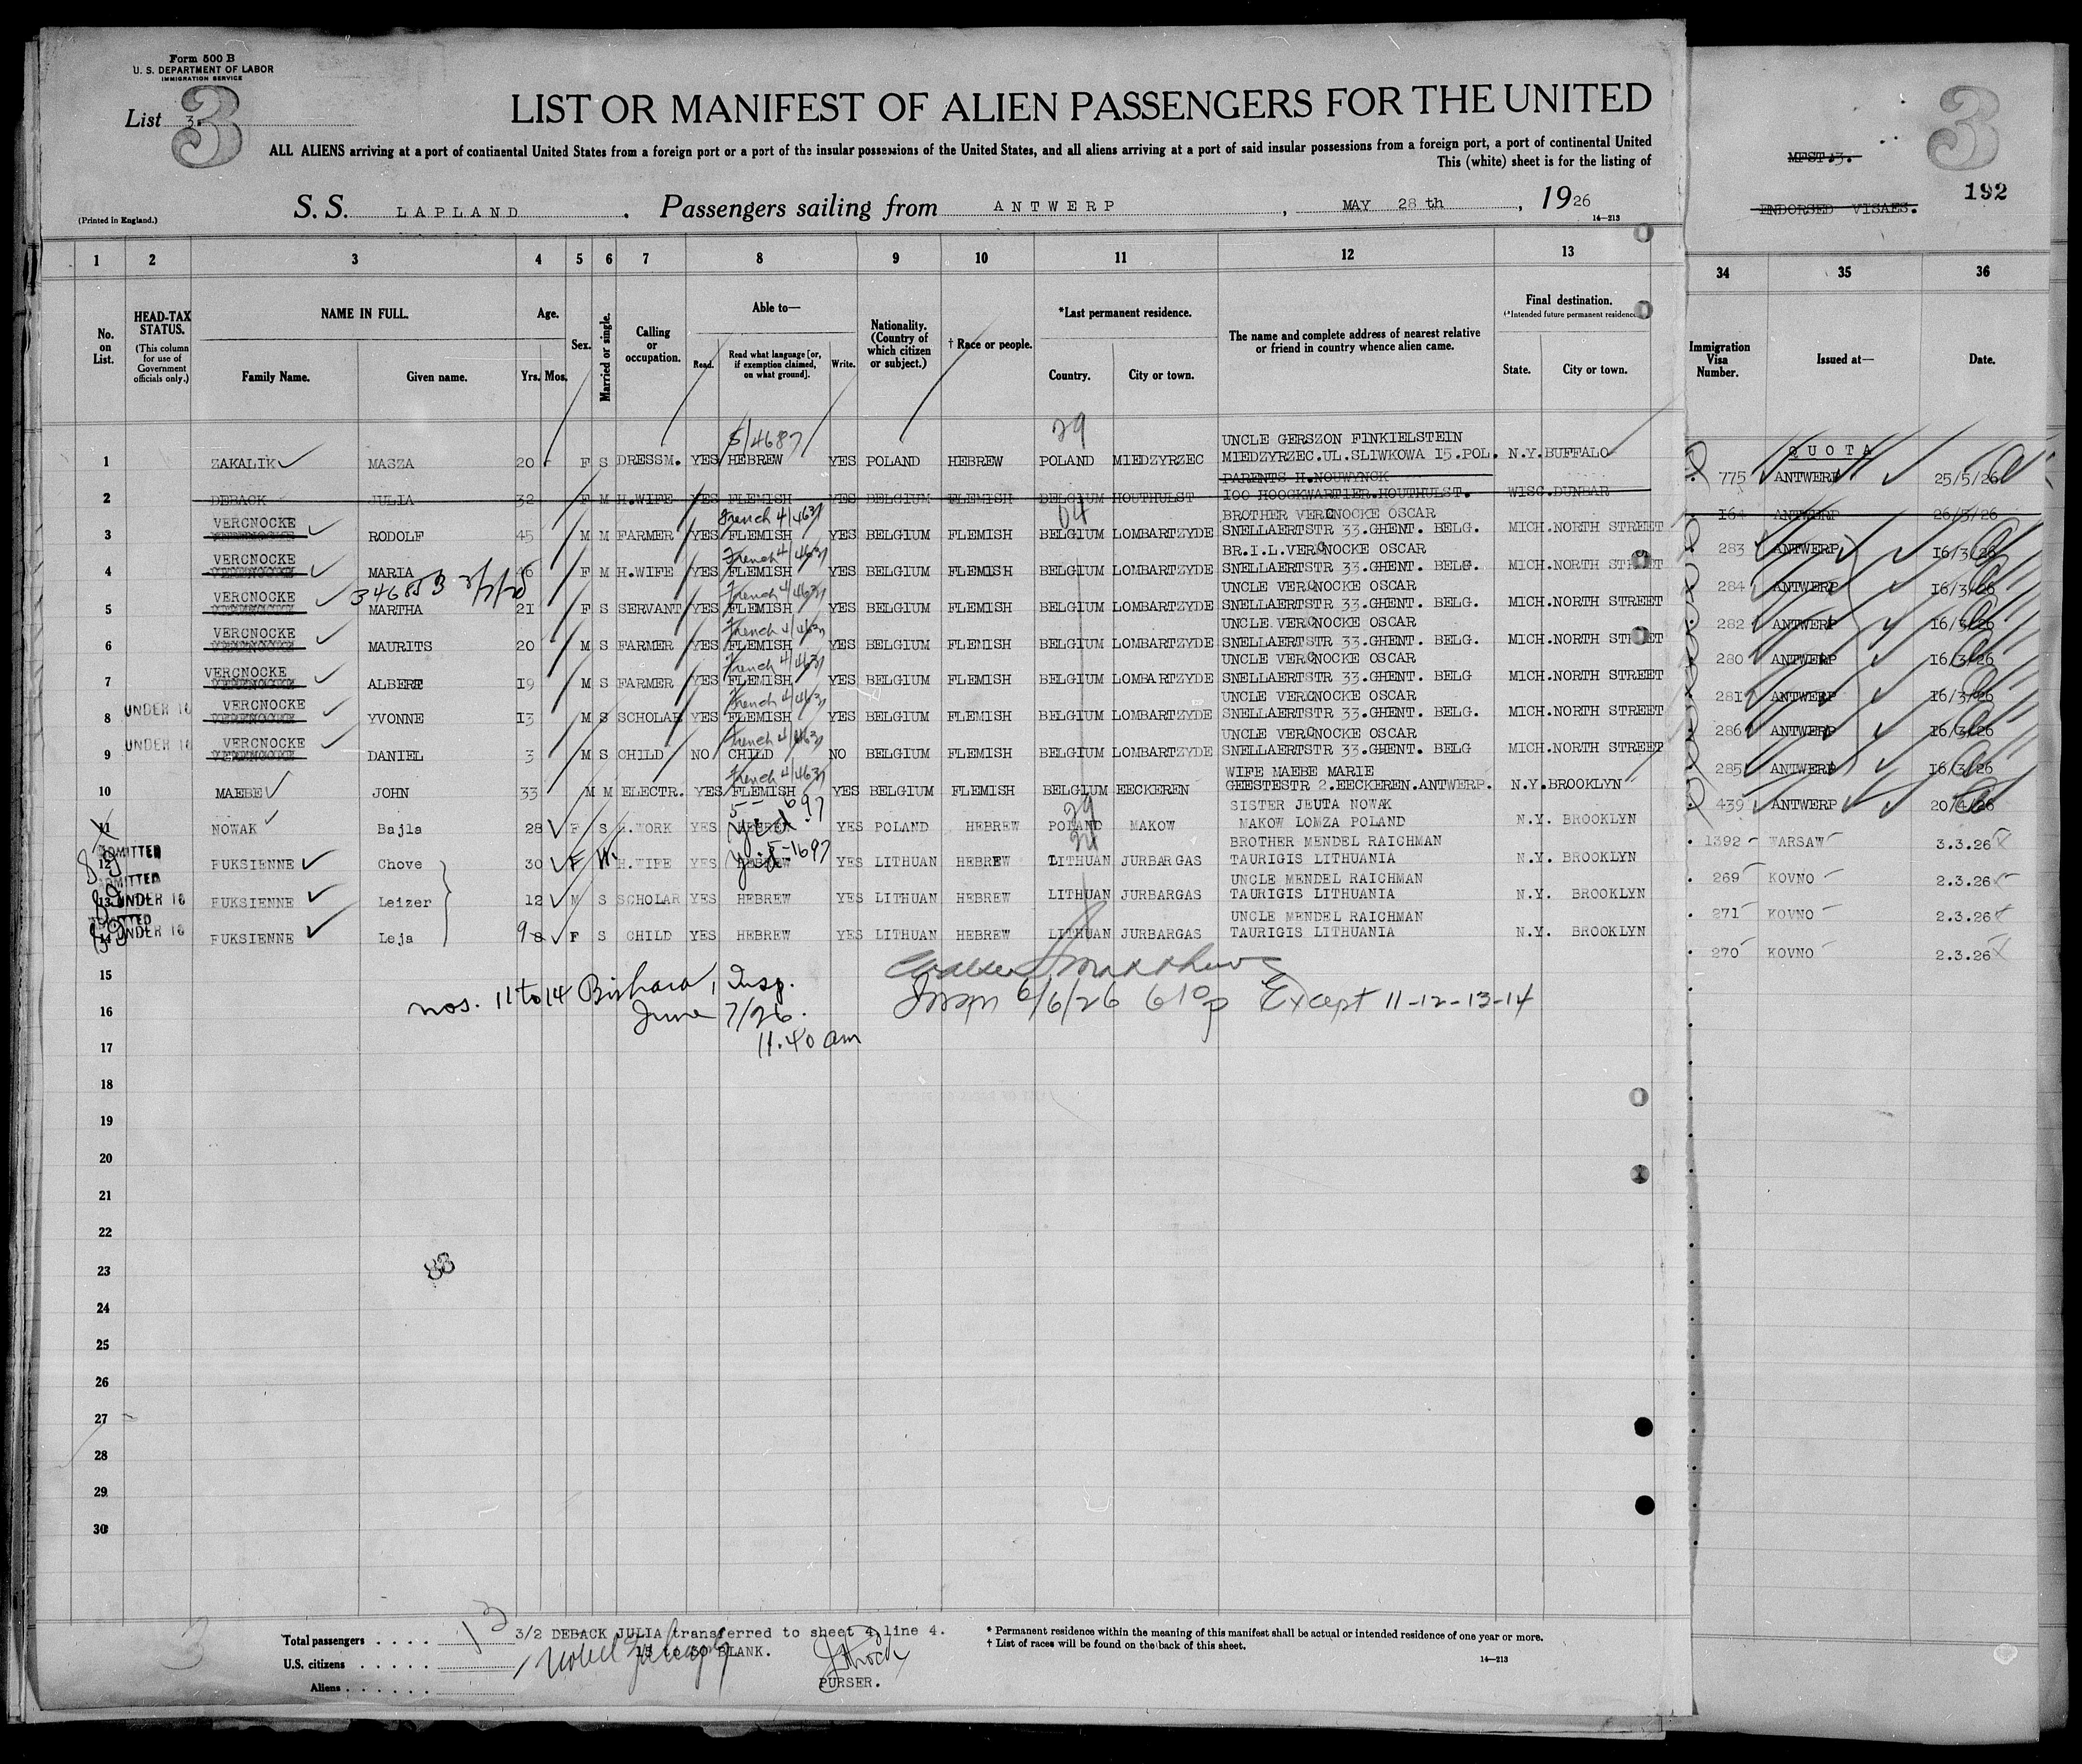 Form 500 B
U. S. DEPARTMENT OF LABOR
IMMIGRATION SERVICE
List 3.
3
LIST OR MANIFEST OF ALIEN PASSENGERS FOR THE UNITED
ALL ALIENS arriving at a port of continental United States from a foreign port or a port of the insular possessions of the United States, and all aliens arriving at a port of said insular possessions from a foreign port, a port of continental United
This (white) sheet is for the listing of
(Printed in England.)
S. S. LAPLAND. Passengers sailing from ANTWERP, MAY 28 th, 1926
14—213
3
MFST.3.
192
ENDORSED VISAES.
1 2 3 4 5 6 7 8 9 10 11 12 13 34 35 36
No. on List.
HEAD-TAX STATUS.
(This column for use of Government officials only.)
NAME IN FULL.
Family Name. Given name.
Age.
Yrs. Mos.
Sex.
Married or single.
Calling or occupation.
Able to—
Read. Read what language [or, if exemption claimed, on what ground]. Write.
Nationality. (Country of which citizen or subject.)
† Race or people.
*Last permanent residence.
Country. City or town.
The name and complete address of nearest relative or friend in country whence alien came.
Final destination.
(*Intended future permanent residence.)
State. City or town.
Immigration Visa Number.
Issued at—
Date.
5/4687 29 UNCLE GERSZON FINKIELSTEIN QUOTA
1 ZAKALIK MASZA 20 F S DRESSM. YES HEBREW YES POLAND HEBREW POLAND MIEDZYRZEC MIEDZYRZEC.UL.SLIWKOWA 15.POL. N.Y.BUFFALO 775 ANTWERP 25/5/26
PARENTS H.NOUWYNCK
2 DEBACK JULIA 32 F M H.WIFE YES FLEMISH YES BELGIUM FLEMISH BELGIUM HOUTHULST 100 HOOGKWARTIER.HOUTHULST. WISC.DUNBAR 164 ANTWERP 26/5/26
VERCNOCKE French 4/4637 04 BROTHER VERCNOCKE OSCAR
3 RODOLF 45 M M FARMER YES FLEMISH YES BELGIUM FLEMISH BELGIUM LOMBARTZYDE SNELLAERTSTR 33.GHENT. BELG. MICH.NORTH STREET 283 ANTWERP 16/3/26
VERCNOCKE French 4/4637 BR.I.L.VERCNOCKE OSCAR
4 MARIA 46 F M H.WIFE YES FLEMISH YES BELGIUM FLEMISH BELGIUM LOMBARTZYDE SNELLAERTSTR 33.GHENT. BELG. MICH.NORTH STREET 284 ANTWERP 16/3/26
VERCNOCKE French 4/4637 UNCLE VERCNOCKE OSCAR
5 MARTHA 21 F S SERVANT YES FLEMISH YES BELGIUM FLEMISH BELGIUM LOMBARTZYDE SNELLAERTSTR 33.GHENT. BELG. MICH.NORTH STREET 282 ANTWERP 16/3/26
VERCNOCKE French 4/4637 UNCLE VERCNOCKE OSCAR
6 MAURITS 20 M S FARMER YES FLEMISH YES BELGIUM FLEMISH BELGIUM LOMBARTZYDE SNELLAERTSTR 33.GHENT. BELG. MICH.NORTH STREET 280 ANTWERP 16/3/26
VERCNOCKE French 4/4637 UNCLE VERCNOCKE OSCAR
7 ALBERT 19 M S FARMER YES FLEMISH YES BELGIUM FLEMISH BELGIUM LOMBARTZYDE SNELLAERTSTR 33.GHENT. BELG MICH.NORTH STREET 281 ANTWERP 16/3/26
UNDER 16 VERCNOCKE French 4/4637 UNCLE VERCNOCKE OSCAR
8 YVONNE 13 M S SCHOLAR YES FLEMISH YES BELGIUM FLEMISH BELGIUM LOMBARTZYDE SNELLAERTSTR 33.GHENT. BELG. MICH.NORTH STREET 286 ANTWERP 16/3/26
UNDER 16 VERCNOCKE French 4/4637 UNCLE VERCNOCKE OSCAR
9 DANIEL 3 M S CHILD NO CHILD NO BELGIUM FLEMISH BELGIUM LOMBARTZYDE SNELLAERTSTR 33.GHENT. BELG MICH.NORTH STREET 285 ANTWERP 16/3/26
French 4/4637 WIFE MAEBE MARIE
10 MAEBE JOHN 33 M M ELECTR. YES FLEMISH YES BELGIUM FLEMISH BELGIUM EECKEREN GEESTESTR 2.EECKEREN.ANTWERP. N.Y.BROOKLYN 439 ANTWERP 20/4/26
29 SISTER JEUTA NOWAK
11 NOWAK Bajla 28 F S H.WORK YES HEBREW Yid YES POLAND HEBREW POLAND MAKOW MAKOW LOMZA POLAND N.Y. BROOKLYN 1392 WARSAW 3.3.26
ADMITTED 5-1697 BROTHER MENDEL RAICHMAN
12 FUKSIENNE Chove 30 F W. H.WIFE YES HEBREW Yid YES LITHUAN HEBREW LITHUAN JURBARGAS TAURIGIS LITHUANIA N.Y. BROOKLYN 269 KOVNO 2.3.26
ADMITTED UNCLE MENDEL RAICHMAN
13 UNDER 16 FUKSIENNE Leizer 12 M S SCHOLAR YES HEBREW YES LITHUAN HEBREW LITHUAN JURBARGAS TAURIGIS LITHUANIA N.Y. BROOKLYN 271 KOVNO 2.3.26
ADMITTED UNCLE MENDEL RAICHMAN
14 UNDER 16 FUKSIENNE Leja 9 8 F S CHILD YES HEBREW YES LITHUAN HEBREW LITHUAN JURBARGAS TAURIGIS LITHUANIA N.Y. BROOKLYN 270 KOVNO 2.3.26
15
nos. 11 to 14 Bishara, Insp.
16 June 7/26. 6/6/26 610p Except 11-12-13-14
11.40 am
17
18
19
20
21
22
23
24
25
26
27
28
29
30
Total passengers 13
U.S. citizens
Aliens
3/2 DEBACK JULIA transferred to sheet 4 line 4.
15 to 30 BLANK.
PURSER.
* Permanent residence within the meaning of this manifest shall be actual or intended residence of one year or more.
† List of races will be found on the back of this sheet.
14—213
3